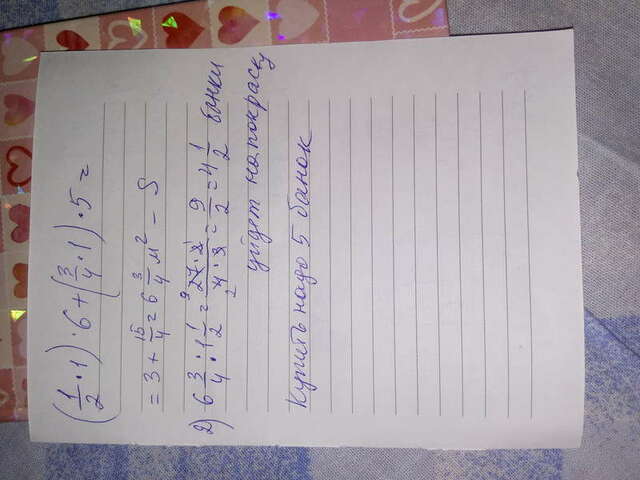 (1/2 · 1) · 6 + (3/4 · 1) · 5 =
= 3 + 15/4 = 6 3/4 м² – S
2) 6 3/4 : 1 1/2 = 27 · 2 / 4 · 3 = 9/2 = 4 1/2 банки
уйдет на покраску
Купить надо 5 банок